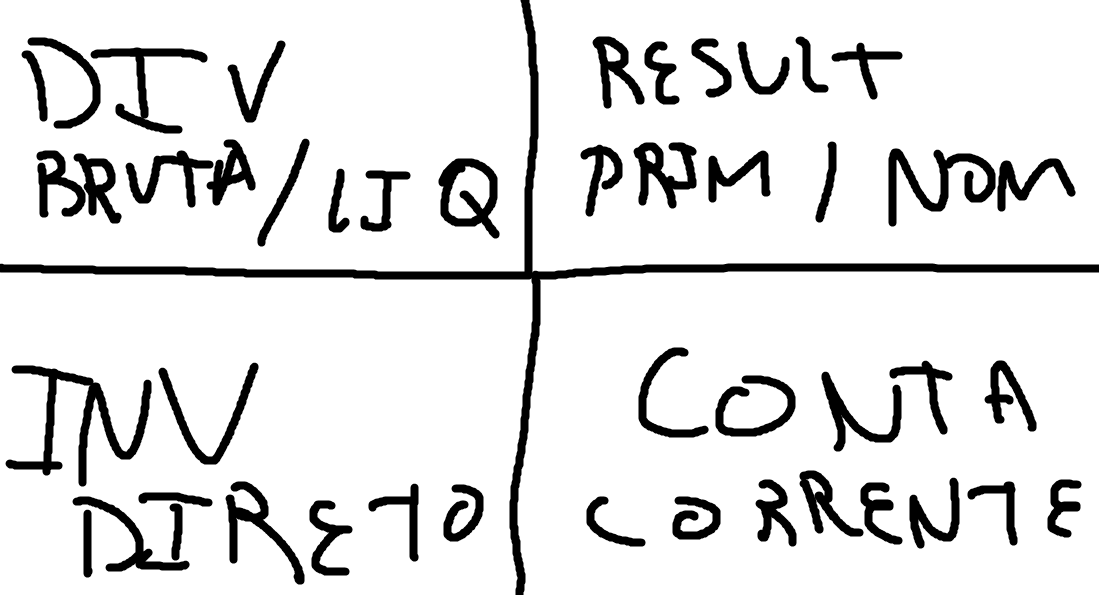 DIV
BRUTA/LIQ
RESULT
PRIM/NOM
INV
DIRETO
CONTA
CORRENTE